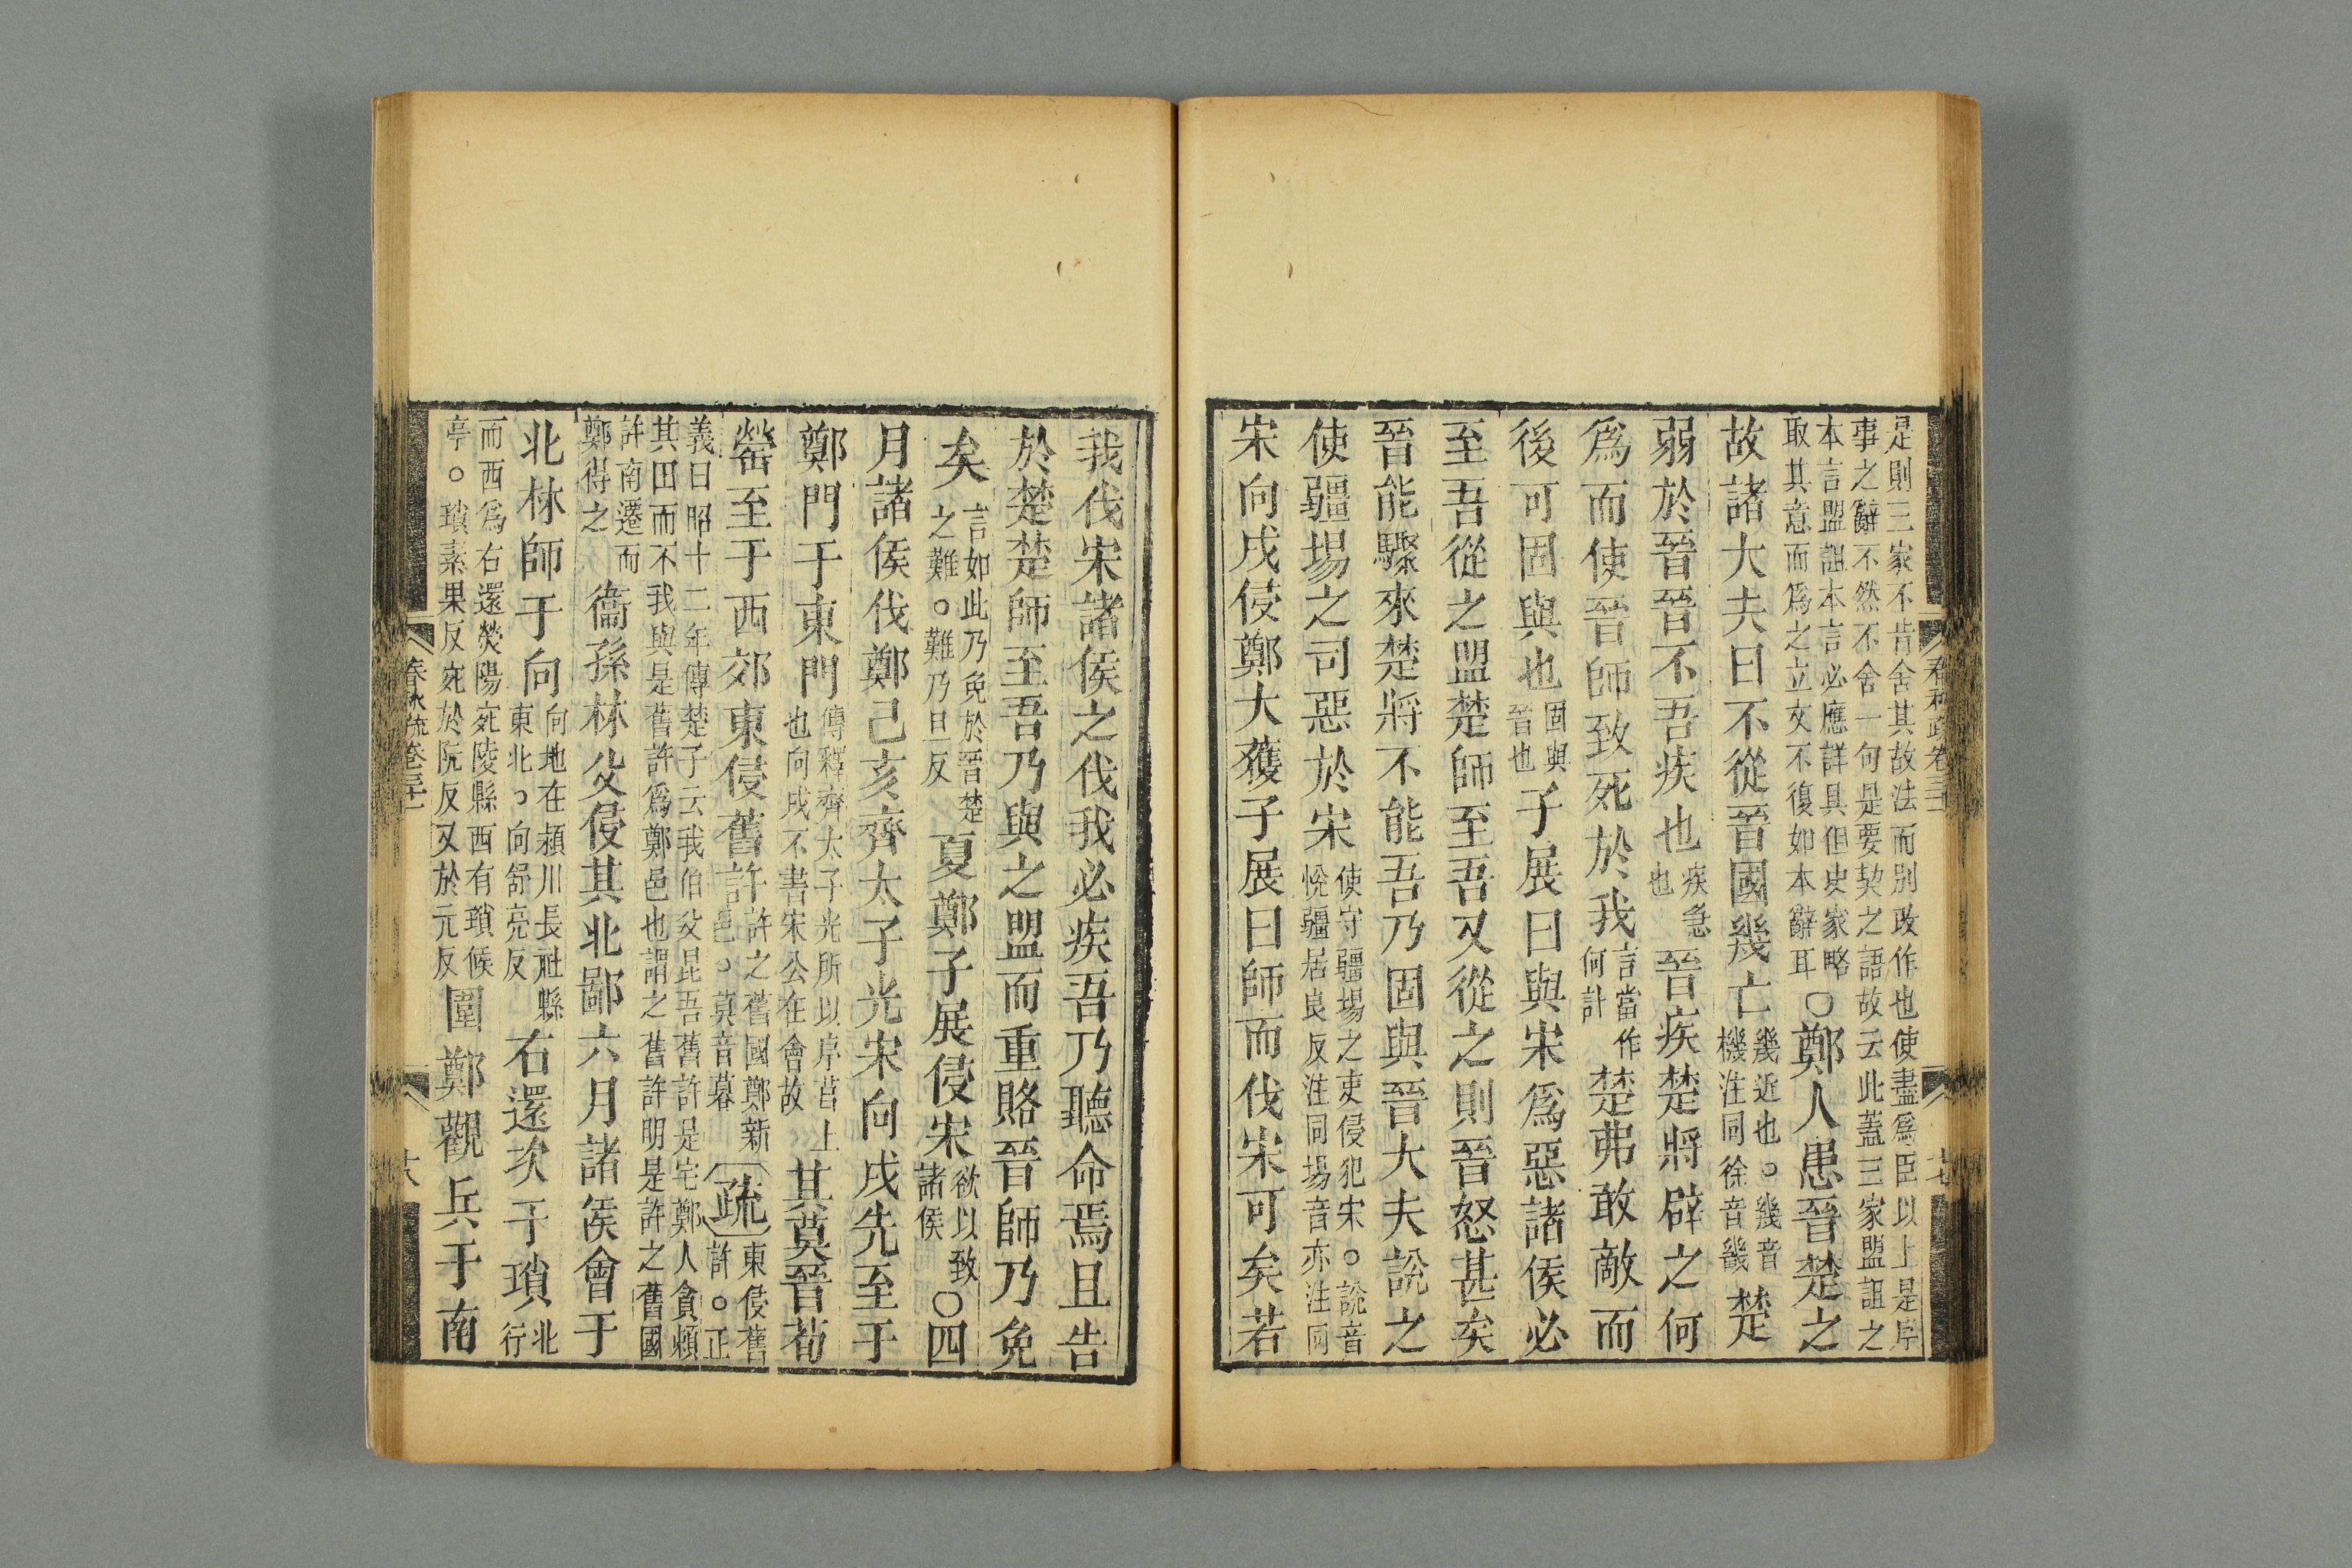 是則三家不肯舍其故法而別改作也使盡爲臣以上是序
事之辭不然不舍一句是要契之語故云此蓋三家盟詛之
本言盟詛本言必應詳具但史家略
取其意而爲之立文不復如本辭耳
○鄭人患晉楚之
故諸大夫曰不從晉國幾亡
幾近也○幾音
機注同徐音畿
楚
弱於晉晉不吾疾也
疾急
也
晉疾楚將辟之何
爲而使晉師致死於我
言當作
何計
楚弗敢敵而
後可固與也
固與
晉也
子展曰與宋爲惡諸侯必
至吾從之盟楚師至吾又從之則晉怒甚矣
晉能驟來楚將不能吾乃固與晉大夫說之
使疆場之司惡於宋
使守疆場之吏侵犯宋○說音
悅疆居良反注同場音亦注同
宋向戌侵鄭大獲子展曰師而伐宋可矣若
我伐宋諸侯之伐我必疾吾乃聽命焉且告
於楚楚師至吾乃與之盟而重賂晉師乃免
矣
言如此乃免於晉楚
之難○難乃旦反
夏鄭子展侵宋
欲以致
諸侯
○四
月諸侯伐鄭己亥齊太子光宋向戌先至于
鄭門于東門
傳釋齊大子光所以序莒上
也向戌不書宋公在會故
其莫晉荀
罃至于西郊東侵舊許
許之舊國鄭新
邑○莫音暮
疏
東侵舊
許○正
義曰昭十二年傳楚子云我伯父昆吾舊許是宅鄭人貪賴
其田而不我與是舊許爲鄭邑也謂之舊許明是許之舊國
許南遷而
鄭得之
衞孫林父侵其北鄙六月諸侯會于
北林師于向
向地在潁川長社縣
東北○向舒亮反
右還次于瑣
北
行
而西爲右還熒陽宛陵縣西有瑣候
亭○瑣素果反宛於阮反又於元反
圍鄭觀兵于南